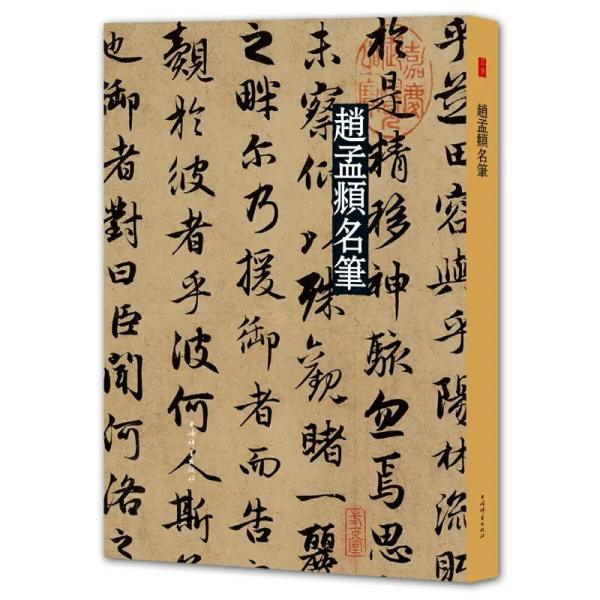 乎芝田容與乎陽林流眄
於是精移神駭忽焉思
未察仰以殊觀睹一麗
之畔尔乃援御者而告
覿於彼者乎彼何人斯
也御者對曰臣聞河洛之
趙孟頫名筆
上海辞書出版社
趙孟頫名筆
上海辞書出版社